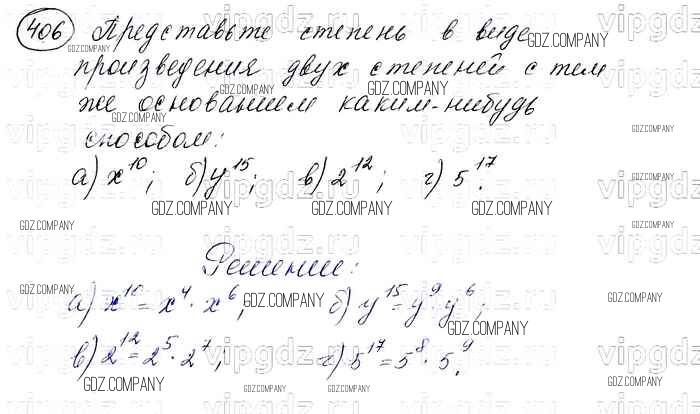 406 Представьте степень в виде
произведения двух степеней с тем
же основанием каким-нибудь
способом:
а) x¹⁰; б) y¹⁵; в) 2¹²; г) 5¹⁷.
Решение:
а) x¹⁰ = x⁴ · x⁶; б) y¹⁵ = y⁹ y⁶;
в) 2¹² = 2⁵ · 2⁷; г) 5¹⁷ = 5⁸ · 5⁹.
GDZ.COMPANY
vipgdz.ru